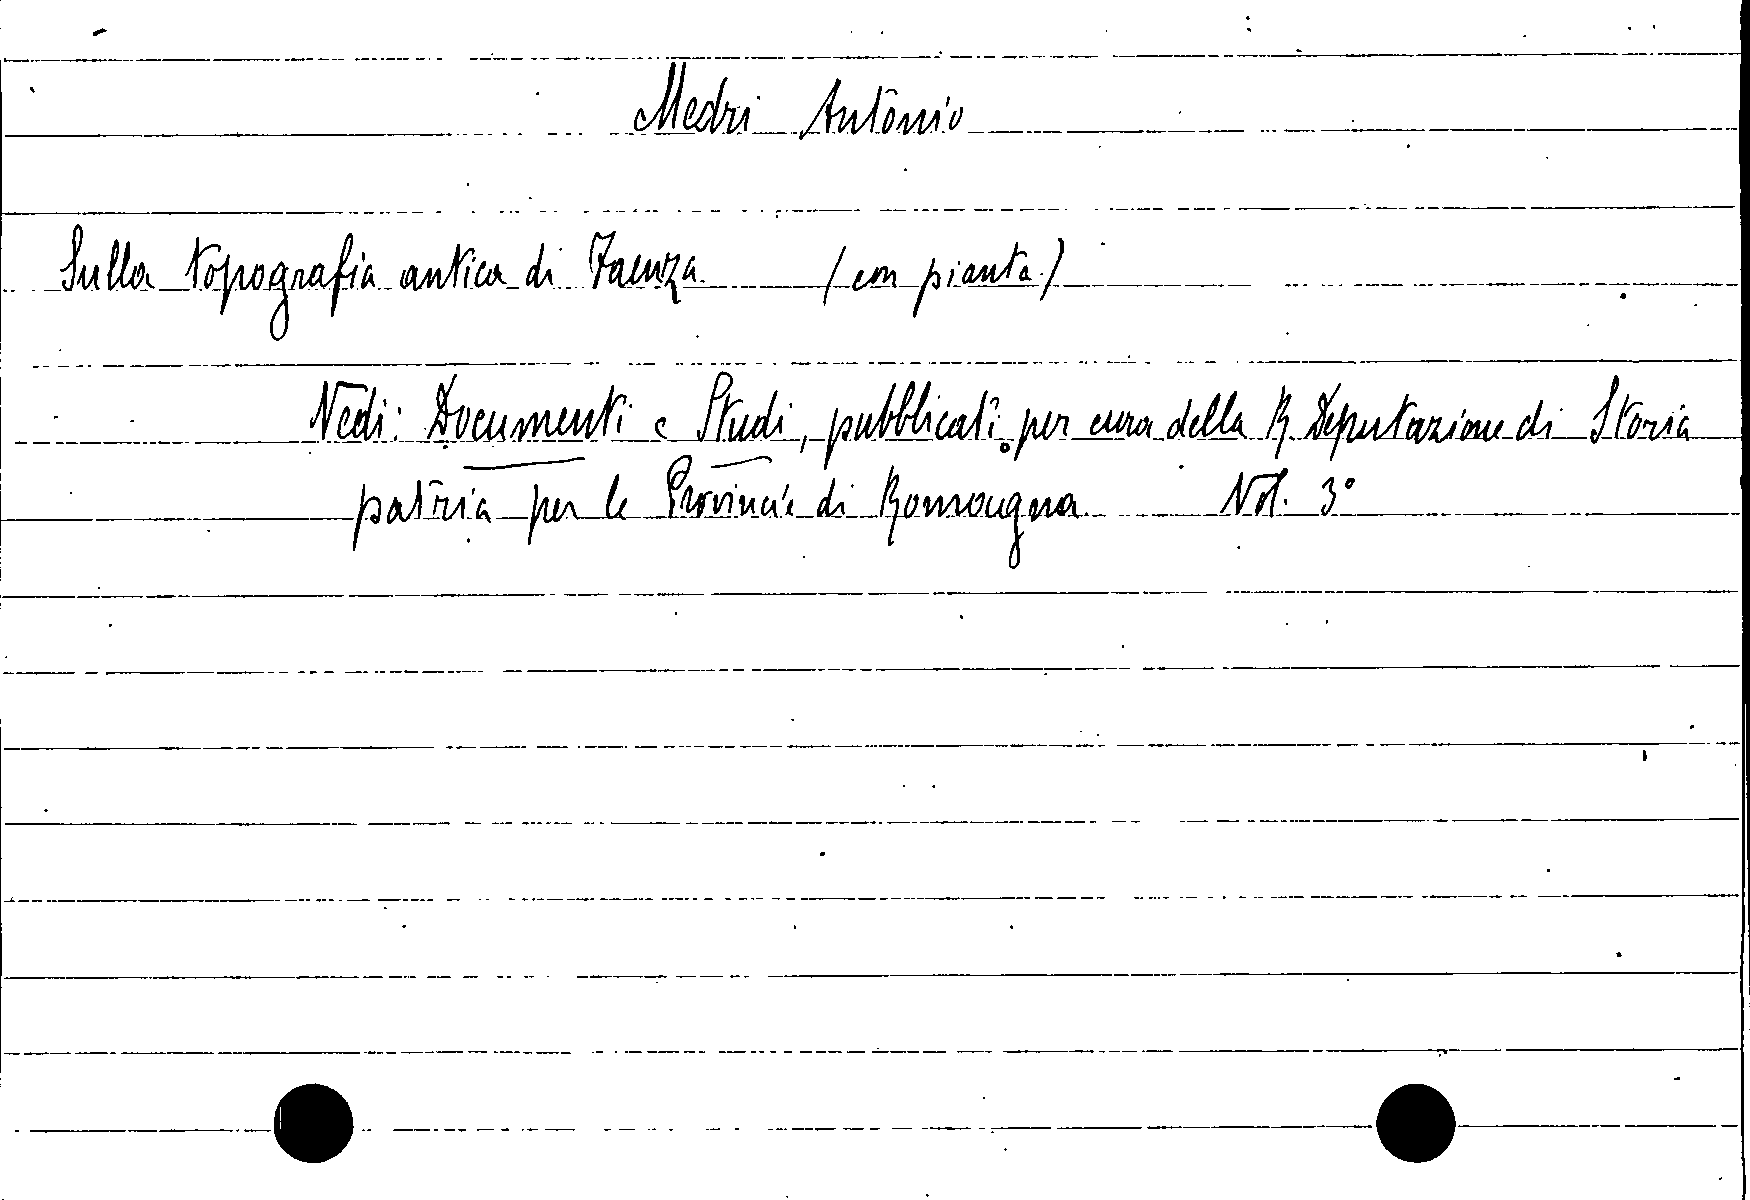 Medri Antonio
Sulla topografia antica di Faenza (con pianta)
Vedi: Documenti e Studi, pubblicati per cura della R. Deputazione di Storia
patria per le Provincie di Romagna Vol. 3°